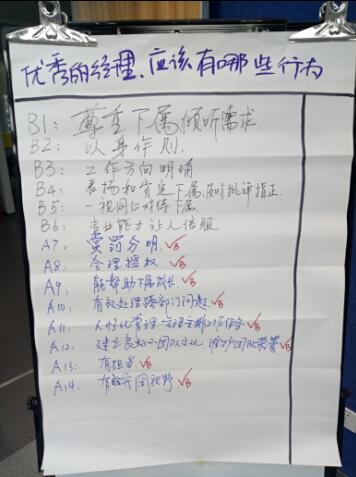 优秀的经理、应该有哪些行为
B1: 尊重下属倾听需求.
B2: 以身作则.
B3: 工作方向明确
B4: 表扬和肯定下属,及时批评指正.
B5: 一视同仁对待下属.
B6: 专业能力让人信服
A7: 赏罚分明. √B
A8 合理授权 √B
A9 能帮助下属成长 √B
A10: 有效处理跨部门问题 √B
A11: 人性化管理 √B
A12 建立良好的团队文化 维护团队荣誉 √B
A13: 有担当 √B
A14: 有视野 √B